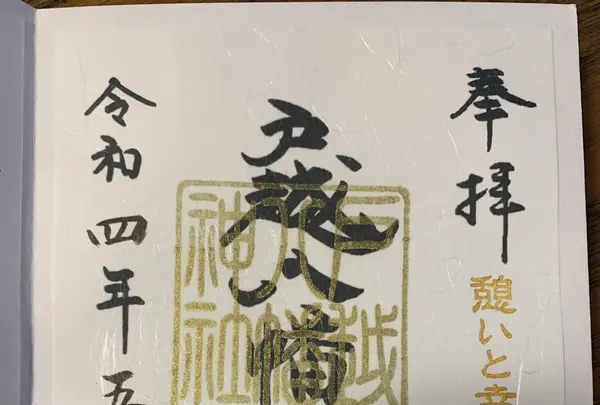 奉拝
憩いと幸
戸越八幡
戸越
八幡
神社
令和四年五